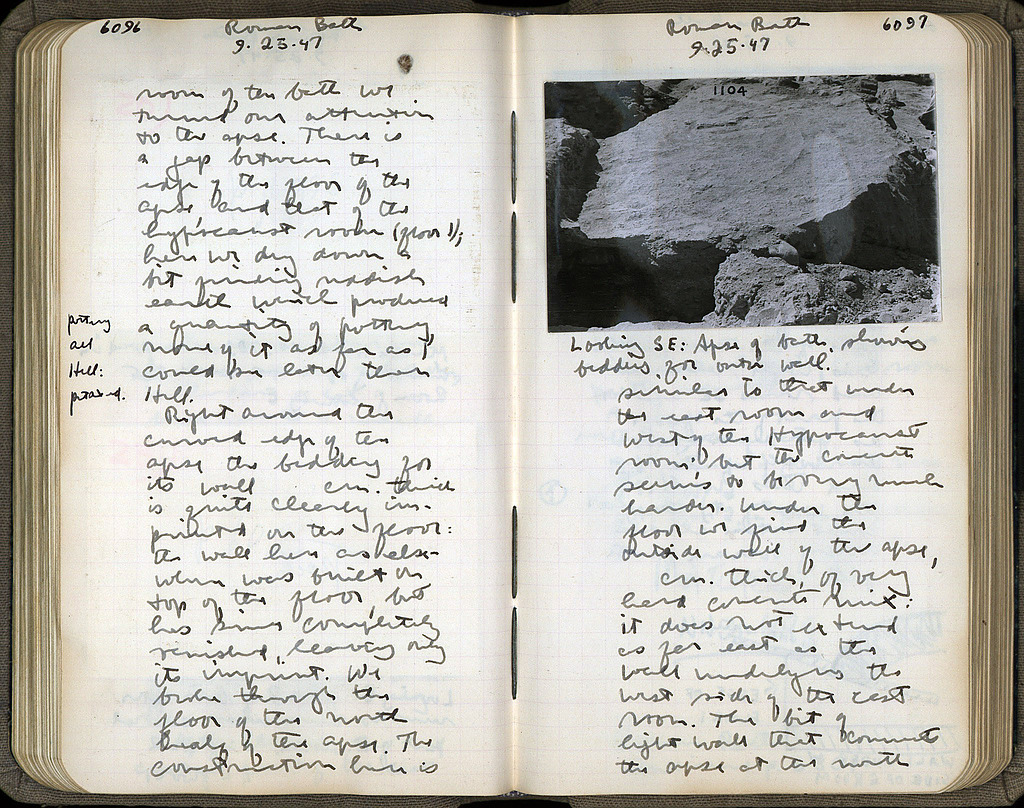 6096
Roman Bath
9.23.47
room of the bath we
turned our attention
to the apse. There is
a gap between the
edge of the floor of the
apse, and that of the
hypocaust room (floor 1);
here we dig down a
bit finding reddish
earth which produced
a quantity of pottery,
none of it as far as I
could see later than
Hell.
pottery
all
Hell:
Right around the
curved edge of the
apse the bedding for
its wall cm. thick
is quite clearly im-
printed on the floor:
the wall here as else-
where was built on
top of the floor, but
has since completely
vanished, leaving only
its imprint. We
broke through the
floor of the north
of the apse. The
construction here is
6097
Roman Bath
9.25.47
1104
Looking SE: Apse of bath, showing
bedding for outer wall.
similar to that under
the east room and
west of the Hypocaust
room; but the concrete
seems to be very much
harder. Under the
floor we find the
outside wall of the apse,
cm. thick, of very
hard concrete mix:
it does not extend
as far east as the
wall underlying the
west side of the east
room. The bit of
light wall that connects
the apse at the north